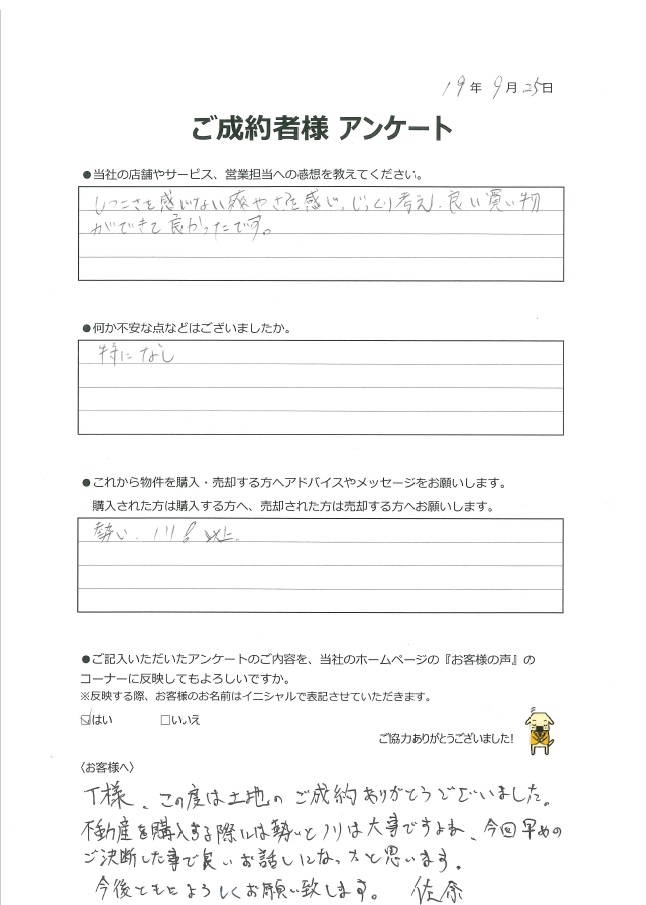 19年 9月 25日
ご成約者様 アンケート
●当社の店舗やサービス、営業担当への感想を教えてください。
しつこさを感じない爽やさを感じ、じっくり考え、良い買い物
ができて良かったです。
●何か不安な点などはございましたか。
特になし
●これから物件を購入・売却する方へアドバイスやメッセージをお願いします。
購入された方は購入する方へ、売却された方は売却する方へお願いします。
勢い、ノリ！以上.
●ご記入いただいたアンケートのご内容を、当社のホームページの『お客様の声』の
コーナーに反映してもよろしいですか。
※反映する際、お客様のお名前はイニシャルで表記させていただきます。
☑はい □いいえ
ご協力ありがとうございました！
〈お客様へ〉
T様、この度は土地のご成約ありがとうございました。
不動産を購入する際には勢いとノリは大事ですよね、今回早めの
ご決断した事で良いお話しになったと思います。
今後ともよろしくお願い致します。 佐奈